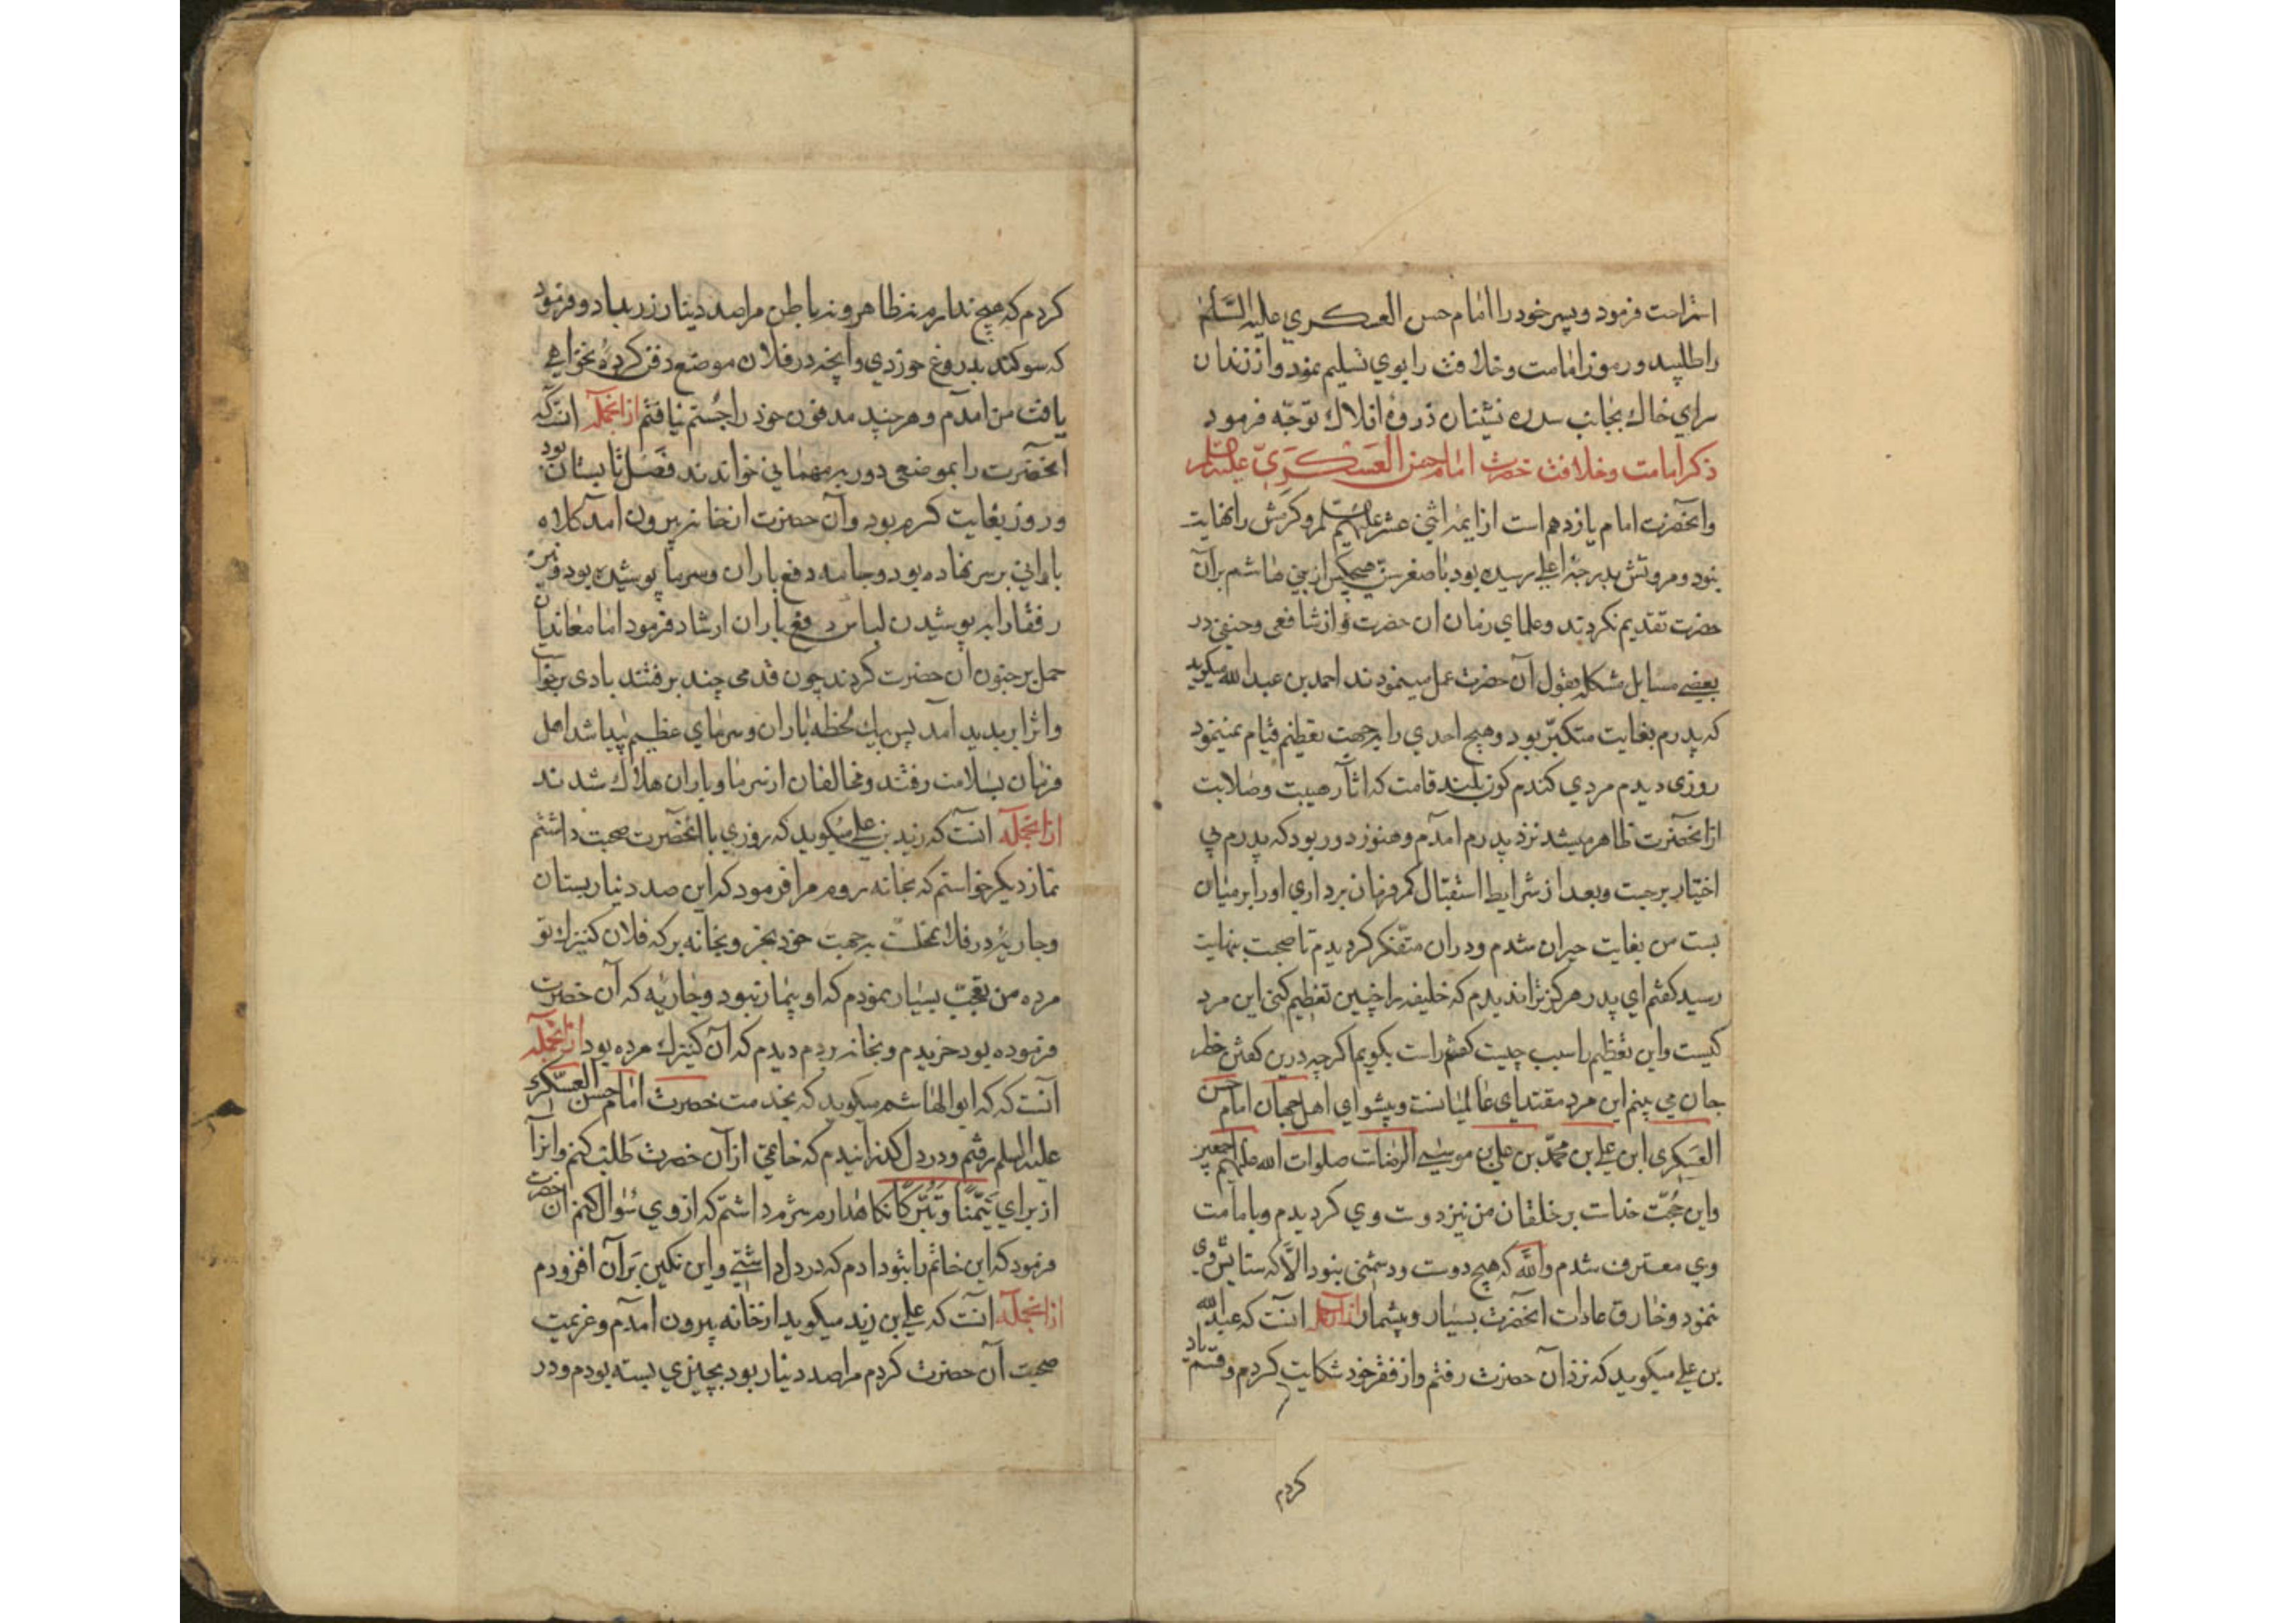 استراحت فرمود و پسر خود را امام حسن العسکری علیه السلام
را طلبید و رموز امامت و خلافت را بوی تسلیم نمود و از زندان
سرای خاک بجانب سدره نشینان ذروهٔ افلاک توجّه فرمود
ذکر امامت و خلافت حضرت امام حسن العسکریّ علیه السلام
و آنحضرت امام یازدهم است از ایمهٔ اثنی عشر علیهم السلم و کرمش را نهایت
نبود و مروتش بدرجهٔ اعلی رسیده بود با صغر سن هیچکس از بنی هاشم بر آن
حضرت تقدیم نکردند و علمای زمان ان حضرت از شافعی و حنفی در
بعضی مسایل مشکله بقول آن حضرت عمل مینمودند احمد بن عبدالله میکوید
که پدرم بغایت متکبّر بود و هیچ احدی را بجهت تعظیم قیام نمینمود
روزی دیدم مردی کندم کون بلند قامت که اثار هیبت و صلابت
از آنحضرت ظاهر میشد نزد پدرم امدم و هنوز دور بود که پدرم بی
اختیار برجست و بعد از شرایط استقبال کمر فرمان برداری او را بر میان
بست من بغایت حیران شدم و در ان متفکر کردیدم تا صحبت بنهایت
رسید کفتم ای پدر هرکز ترا ندیدم که خلیفه را چنین تعظیم کنی این مرد
کیست و این تعظیم را سبب چیست کفتم راست بکویم اکرچه درین کفتن خطر
جان می بینم این مرد مقتدای عالمیانست و پیشوای اهل جهان امام حسن
العسکری ابن علی بن محمّد بن علی بن موسی الرضاست صلوات الله علیهم اجمعین
و این حُجّت خداست بر خلقان من نیز دوست وی کردیدم و بامامت
وی معترف شدم والله که هیچ دوست و دشمنی نبود الّا که ستایش وی
نمود و خارق عادات آنحضرت بسیار و بیشمار از انجمله انست که عبدالله
بن علی میکوید که نزد آن حضرت رفتم و از فقر خود شکایت کردم و قسم یاد
کردم
کردم که هیچ ندارم نه ظاهر و نه باطن مرا صد دینار زر بداد و فرمود
که سوکند بدروغ خوردی و آنچه در فلان موضع دفن کردهٔ نخواهی
یافت من امدم و هر چند مدفون خود را جُستم نیافتم از انجمله انست که
آنحضرت را بموضعی دور به مهمانی خواندند فصل تابستان بود
و روز بغایت کرم بود و آن حضرت از خانه بیرون آمد کلاه
بارانی بر سر نهاده بود و جامه دفع باران و سرما پوشیده بود و نیز
رفقا را به پوشیدن لباس دفع باران ارشاد فرمود اما معاندان
حمل بر جنون آن حضرت کردند چون قدمی چند برفتند بادی برخواست
و اثر ابر بدید آمد پس بیک لحظه باران و سرمای عظیم پیدا شد اهل
فرمان بسلامت رفتند و مخالفان از سرما و باران هلاک شدند
از انجمله انست که زید بن علی میکوید که روزی با آنحضرت صحبت داشتم
نماز دیکر خواستم که بخانه روم مرا فرمود که این صد دینار بستان
و جاریهٔ در فلان محلت بجهت خود بخر و بخانه بر که فلان کنیزک تو
مرده من تعجّب بسیار نمودم که او بیمار نبود و جاریه که آن حضرت
فرموده بود خریدم و بخانه بردم دیدم که آن کنیزک مرده بود از انجمله
آنست که که ابو الهاشم میکوید که بخدمت حضرت امام حسن العسکری
علیه السلم رفتم و در دل کذرانیدم که خاتمی از آن حضرت طلب کنم و انرا
از برای تَیَمّنًا و تَبَرّکًا نکاهدارم شرم داشتم که از وی سُوال کنم آن حضرت
فرمود که این خاتم را بتو دادم که در دل داشتی و این نکین بر آن افزودم
از انجمله آنست که علی بن زید میکوید از خانه بیرون امدم و عزیمت
صحبت آن حضرت کردم مرا صد دینار بود بچیزی بسته بودم و در